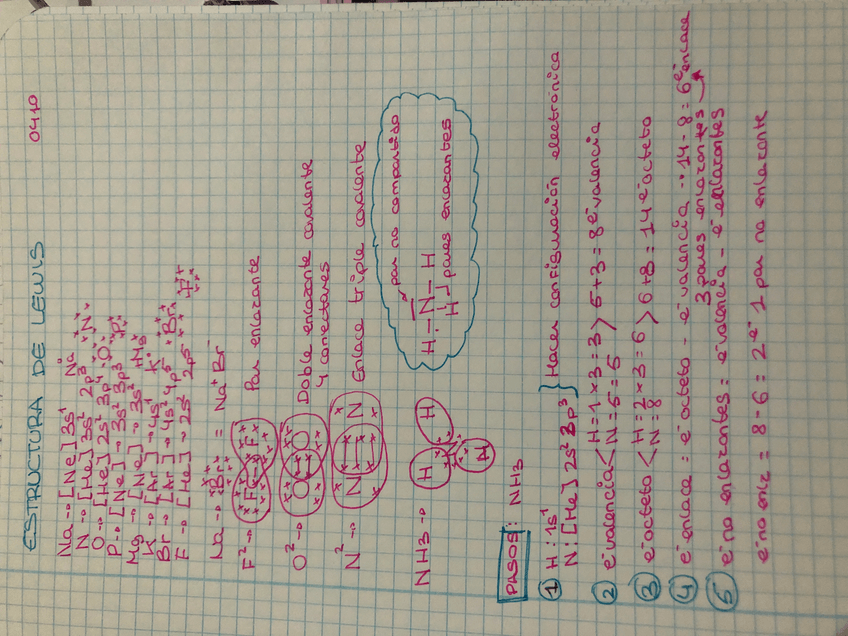 ESTRUCTURA DE LEWIS 0410
Na → [Ne] 3s¹ Na
N → [He] 3s² 2p³ N
O → [He] 2s² 3p⁴ O
P → [Ne] → 3s² 3p³ P
Mg → [Ne] → 3s² Mg
K → [Ar] → 4s¹ K
Br → [Ar] → 4s² 4p⁵ Br
F → [He] → 2s² 2p⁵ F
Na → Br = Na⁺ Br⁻
F² → F F Par enlazante
O² → O O Doble enlazante covalente
4 conectares
N² → N N Enlace triple covalente
NH3 → H H N H
par no compartido
H - N - H
H pares enlazantes
PASOS: NH3
1 H: 1s¹
N: [He] 2s² 3p³ } Hacer configuración electrónica
2 e⁻valencia < H = 1 x 3 = 3 > 5 + 3 = 8 e⁻valencia
N = 5 = 5
3 e⁻octeto < H = 2 x 3 = 6 > 6 + 8 = 14 e⁻octeto
N = 8
4 e⁻enlace = e⁻octeto - e⁻valencia → 14 - 8 = 6 e⁻enlace
3 pares enlazantes
5 e⁻no enlazantes = e⁻valencia - e⁻enlazantes
e⁻no enlz = 8 - 6 = 2 e⁻ 1 par no enlazante